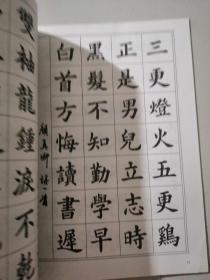 三更燈火五更鷄
正是男兒立志時
黑髮不知勤學早
白首方悔讀書遲
顏真卿詩一首
雙袖龍鍾淚不乾